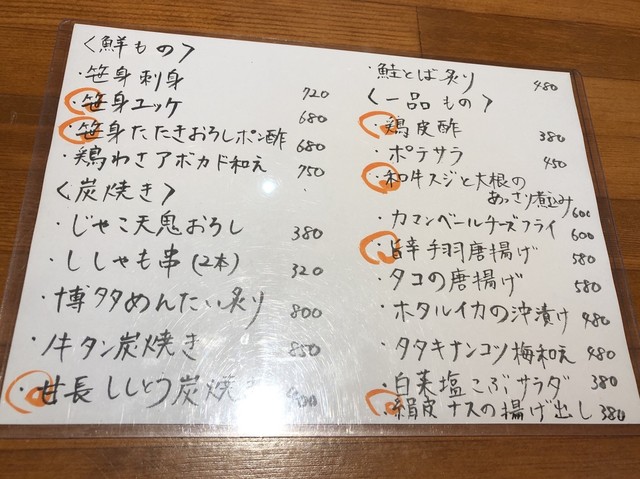 〈鮮もの〉
・笹身刺身 720
・笹身ユッケ 680
・笹身たたきおろしポン酢 680
・鶏わさアボカド和え 750
〈炭焼き〉
・じゃこ天鬼おろし 380
・ししゃも串(2本) 320
・博多めんたい炙り 800
・牛タン炭焼き 850
・甘長ししとう炭焼き
・鮭とば炙り 480
〈一品もの〉
・鶏皮酢 380
・ポテサラ 450
・和牛スジと大根の
あっさり煮込み 600
・カマンベールチーズフライ 600
・旨辛手羽唐揚げ 580
・タコの唐揚げ 580
・ホタルイカの沖漬け 480
・タタキナンコツ梅和え 480
・白菜塩こぶサラダ 380
・絹皮ナスの揚げ出し 380